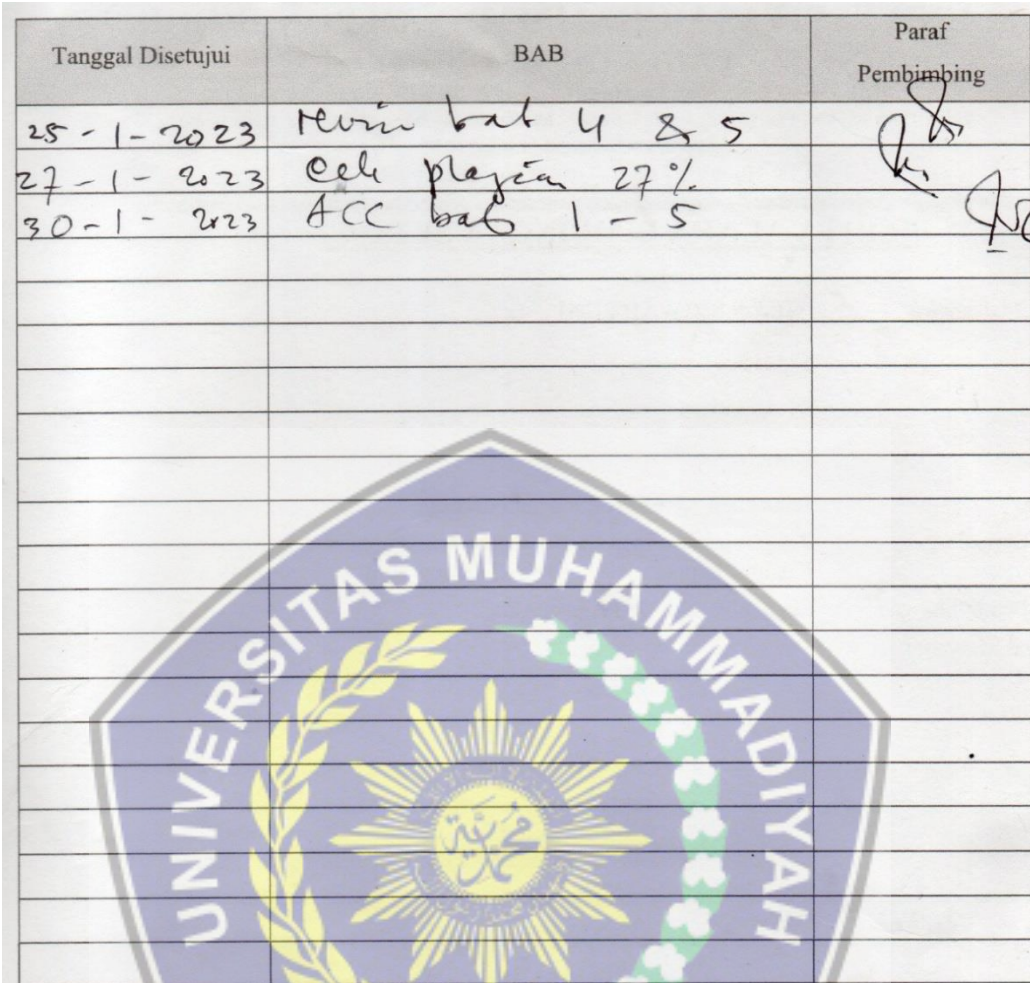 Tanggal Disetujui BAB Paraf
Pembimbing
25 - 1 - 2023 revisi bab 4 & 5
27 - 1 - 2023 cek plagian 27%
30 - 1 - 2023 ACC bab 1 - 5
UNIVERSITAS MUHAMMADIYAH